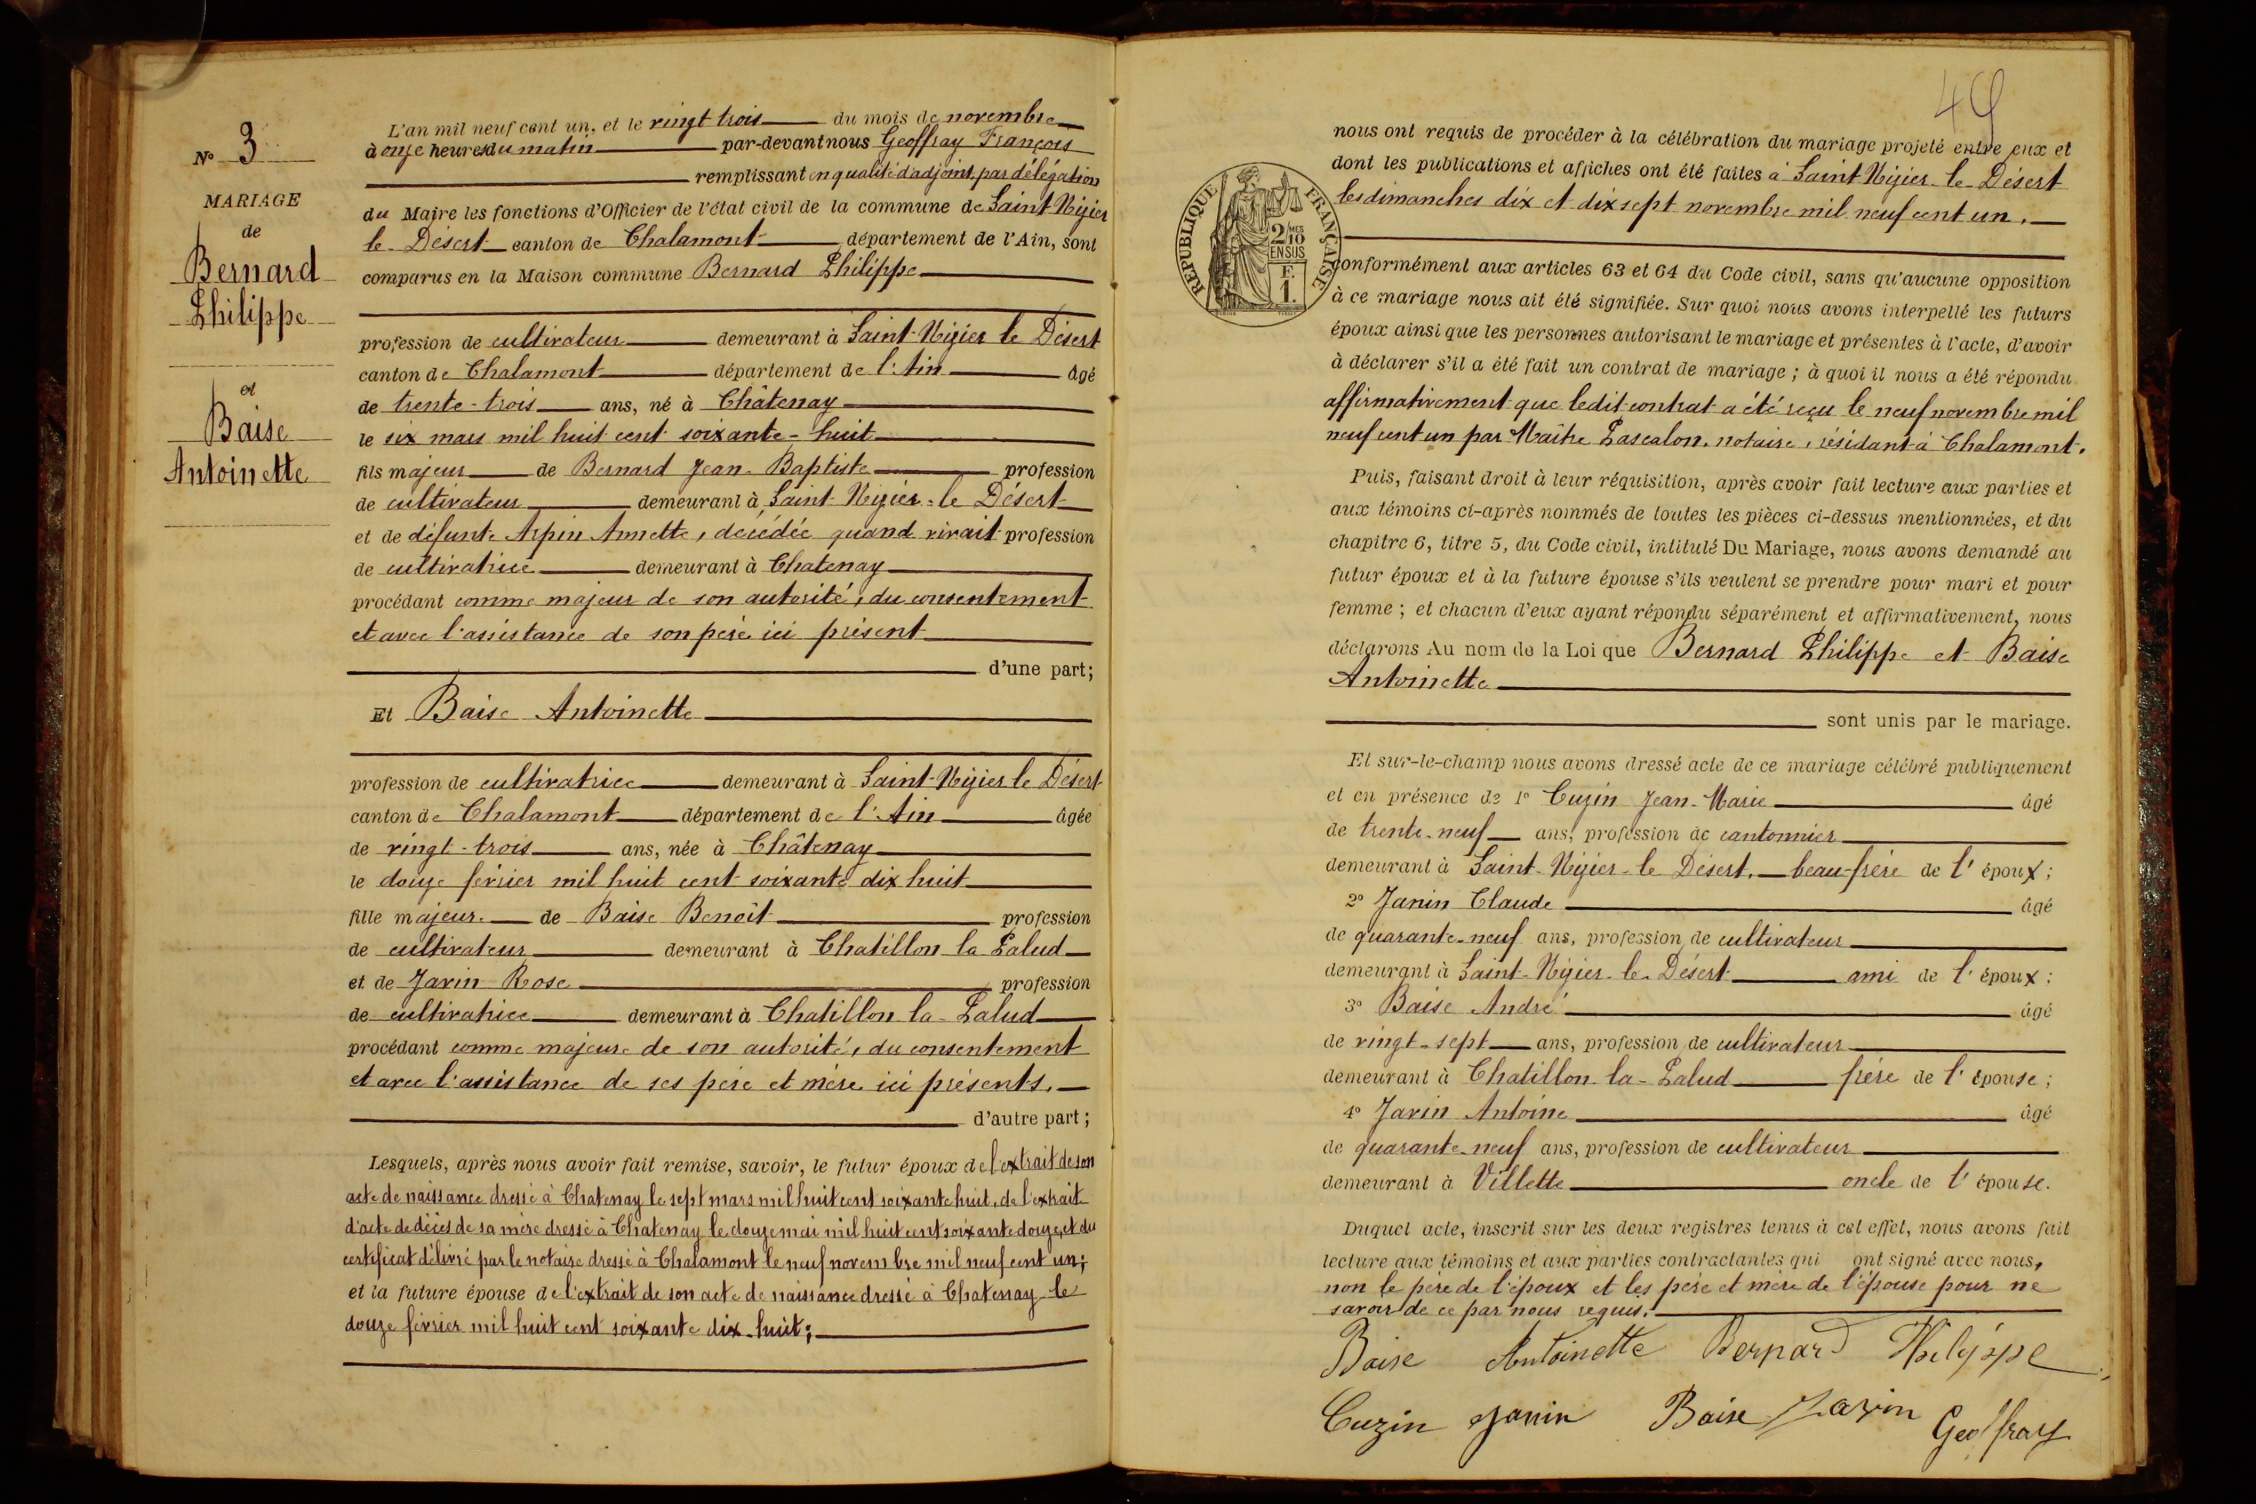 N° 3
MARIAGE
de
Bernard
Philippe
et
Baise
Antoinette
L'an mil neuf cent un, et le vingt trois du mois de novembre
à onze heures du matin par-devant nous Geoffray François
remplissant en qualité d'adjoint, par délégation
du Maire les fonctions d'Officier de l'état civil de la commune de Saint-Nizier
le Désert canton de Chalamont département de l'Ain, sont
comparus en la Maison commune Bernard Philippe
profession de cultivateur demeurant à Saint-Nizier le Désert
canton de Chalamont département de l'Ain âgé
de trente-trois ans, né à Châtenay
le six mars mil huit cent soixante-huit
fils majeur de Bernard Jean-Baptiste profession
de cultivateur demeurant à Saint-Nizier-le Désert
et de défunte Arpin Annette, décédée quand vivait profession
de cultivatrice demeurant à Chatenay
procédant comme majeur de son autorité, du consentement
et avec l'assistance de son père ici présent
d'une part;
Et Baise Antoinette
profession de cultivatrice demeurant à Saint-Nizier le Désert
canton de Chalamont département de l'Ain âgée
de vingt-trois ans, née à Châtenay
le douze février mil huit cent soixante dix huit
fille majeure de Baise Benoît profession
de cultivateur demeurant à Chatillon la Palud
et de Javin Rose profession
de cultivatrice demeurant à Chatillon la-Palud
procédant comme majeure de son autorité, du consentement
et avec l'assistance de ses père et mère ici présents.
d'autre part;
Lesquels, après nous avoir fait remise, savoir, le futur époux de l'extrait de son
acte de naissance dressé à Chatenay le sept mars mil huit cent soixante huit, de l'extrait
d'acte de décès de sa mère dressé à Chatenay le douze mai mil huit cent soixante douze, et du
certificat délivré par le notaire dressé à Chalamont le neuf novembre mil neuf cent un;
et la future épouse de l'extrait de son acte de naissance dressé à Chatenay le
douze février mil huit cent soixante dix-huit;
49
RÉPUBLIQUE FRANÇAISE
2/10 MES
EN SUS
F.
1.
nous ont requis de procéder à la célébration du mariage projeté entre eux et
dont les publications et affiches ont été faites à Saint-Nizier-le-Désert
les dimanches dix et dix sept novembre mil neuf cent un.
conformément aux articles 63 et 64 du Code civil, sans qu'aucune opposition
à ce mariage nous ait été signifiée. Sur quoi nous avons interpellé les futurs
époux ainsi que les personnes autorisant le mariage et présentes à l'acte, d'avoir
à déclarer s'il a été fait un contrat de mariage; à quoi il nous a été répondu
affirmativement que ledit contrat a été reçu le neuf novembre mil
neuf cent un par Maître Pascalon, notaire, résidant à Chalamont.
Puis, faisant droit à leur réquisition, après avoir fait lecture aux parties et
aux témoins ci-après nommés de toutes les pièces ci-dessus mentionnées, et du
chapitre 6, titre 5, du Code civil, intitulé Du Mariage, nous avons demandé au
futur époux et à la future épouse s'ils veulent se prendre pour mari et pour
femme; et chacun d'eux ayant répondu séparément et affirmativement, nous
déclarons Au nom de la Loi que Bernard Philippe et Baise
Antoinette
sont unis par le mariage.
Et sur-le-champ nous avons dressé acte de ce mariage célébré publiquement
et en présence de 1° Cuzin Jean-Marie âgé
de trente-neuf ans, profession de cantonnier
demeurant à Saint-Nizier-le Désert, beau-frère de l'époux;
2° Janin Claude âgé
de quarante-neuf ans, profession de cultivateur
demeurant à Saint-Nizier-le-Désert ami de l'époux;
3° Baise André âgé
de vingt-sept ans, profession de cultivateur
demeurant à Chatillon-la-Palud frère de l'épouse;
4° Javin Antoine âgé
de quarante-neuf ans, profession de cultivateur
demeurant à Villette oncle de l'épouse.
Duquel acte, inscrit sur les deux registres tenus à cet effet, nous avons fait
lecture aux témoins et aux parties contractantes qui ont signé avec nous,
non le père de l'époux et les père et mère de l'épouse pour ne
savoir de ce par nous requis.
Baise Antoinette Bernard Philippe
Cuzin Janin Baise Javin Geoffray